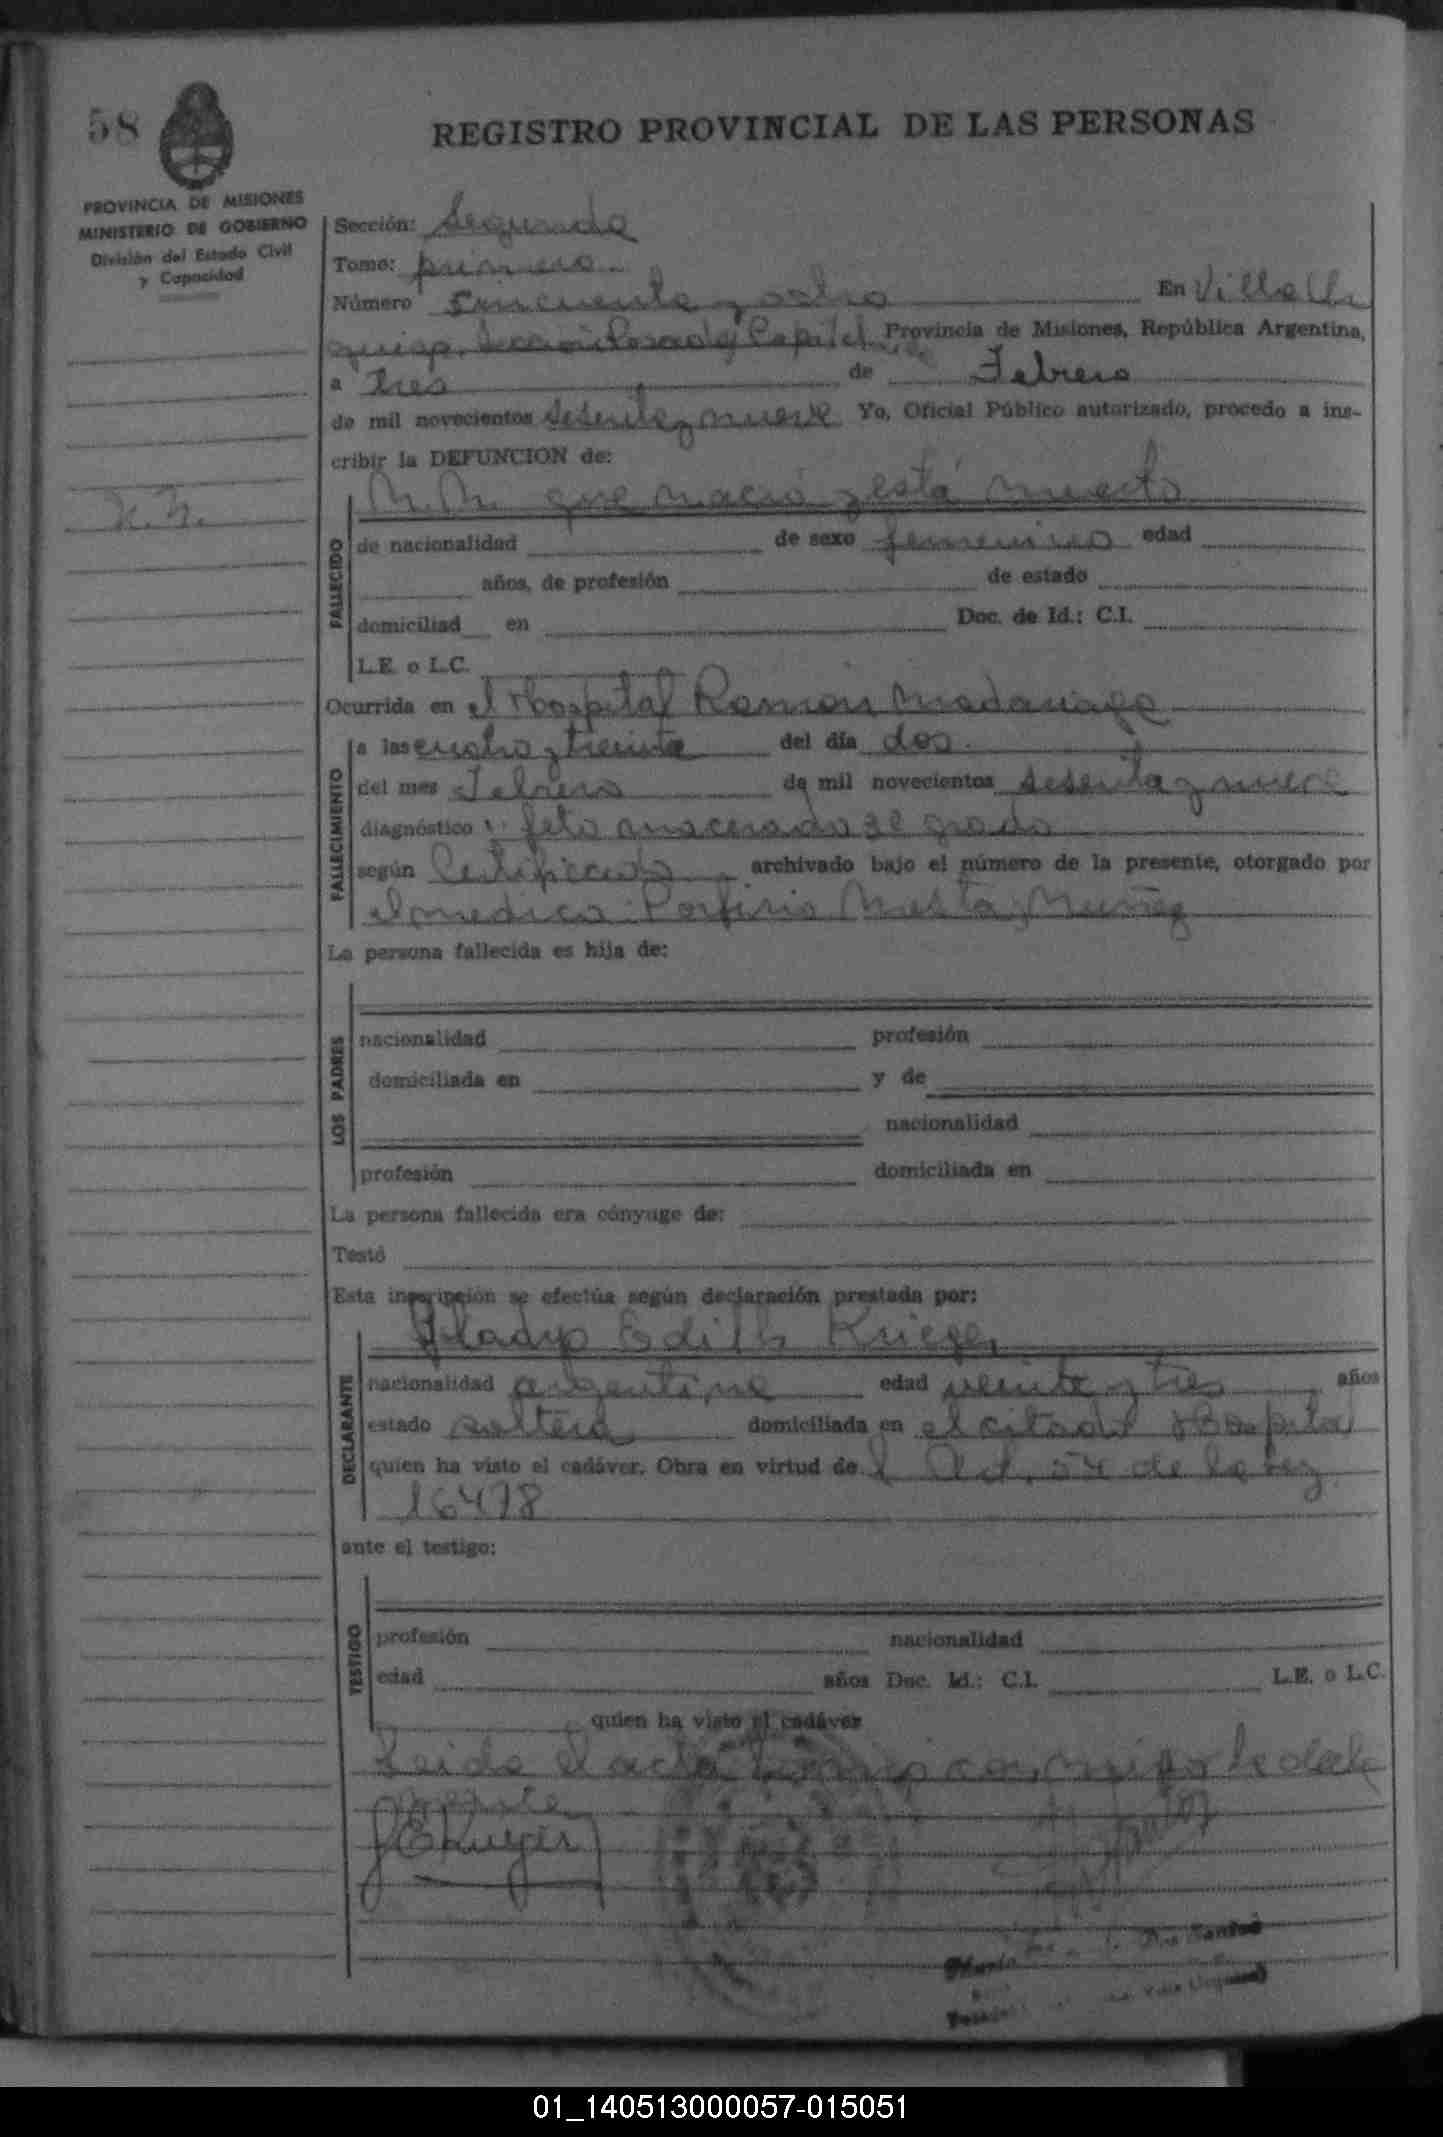 58
REGISTRO PROVINCIAL DE LAS PERSONAS
PROVINCIA DE MISIONES
MINISTERIO DE GOBIERNO
División del Estado Civil
y Capacidad
Sección: Segunda
Tomo: primero
Número cincuenta y ocho En Villa
Sección Posadas Capital Provincia de Misiones, República Argentina,
a tres de Febrero
de mil novecientos sesenta y nueve Yo, Oficial Público autorizado, procedo a ins-
cribir la DEFUNCION de:
N.N.
N.N. que nació y está muerto
FALLECIDO
de nacionalidad de sexo femenino edad
años, de profesión de estado
domiciliad en Doc. de Id.: C.I.
L.E. o L.C.
Ocurrida en el Hospital Ramon Madariaga
FALLECIMIENTO
a las cuatro y treinta del día dos
del mes Febrero de mil novecientos sesenta y nueve
diagnóstico feto macerado 3e grado
según Certificado archivado bajo el número de la presente, otorgado por
el medico Porfirio Muñoz
La persona fallecida es hija de:
LOS PADRES
nacionalidad profesión
domiciliada en y de
nacionalidad
profesión domiciliada en
La persona fallecida era cónyuge de:
Testó
Esta inscripción se efectúa según declaración prestada por:
Gladys Edith Krieger
DECLARANTE
nacionalidad argentina edad veinte y tres años
estado soltera domiciliada en el citado Hospital
quien ha visto el cadáver. Obra en virtud del Art. 54 de la ley
16478
ante el testigo:
TESTIGO
profesión nacionalidad
edad años Doc. Id.: C.I. L.E. o L.C.
quien ha visto el cadáver
Leida el acta conmigo la decla
rante
01_140513000057-015051